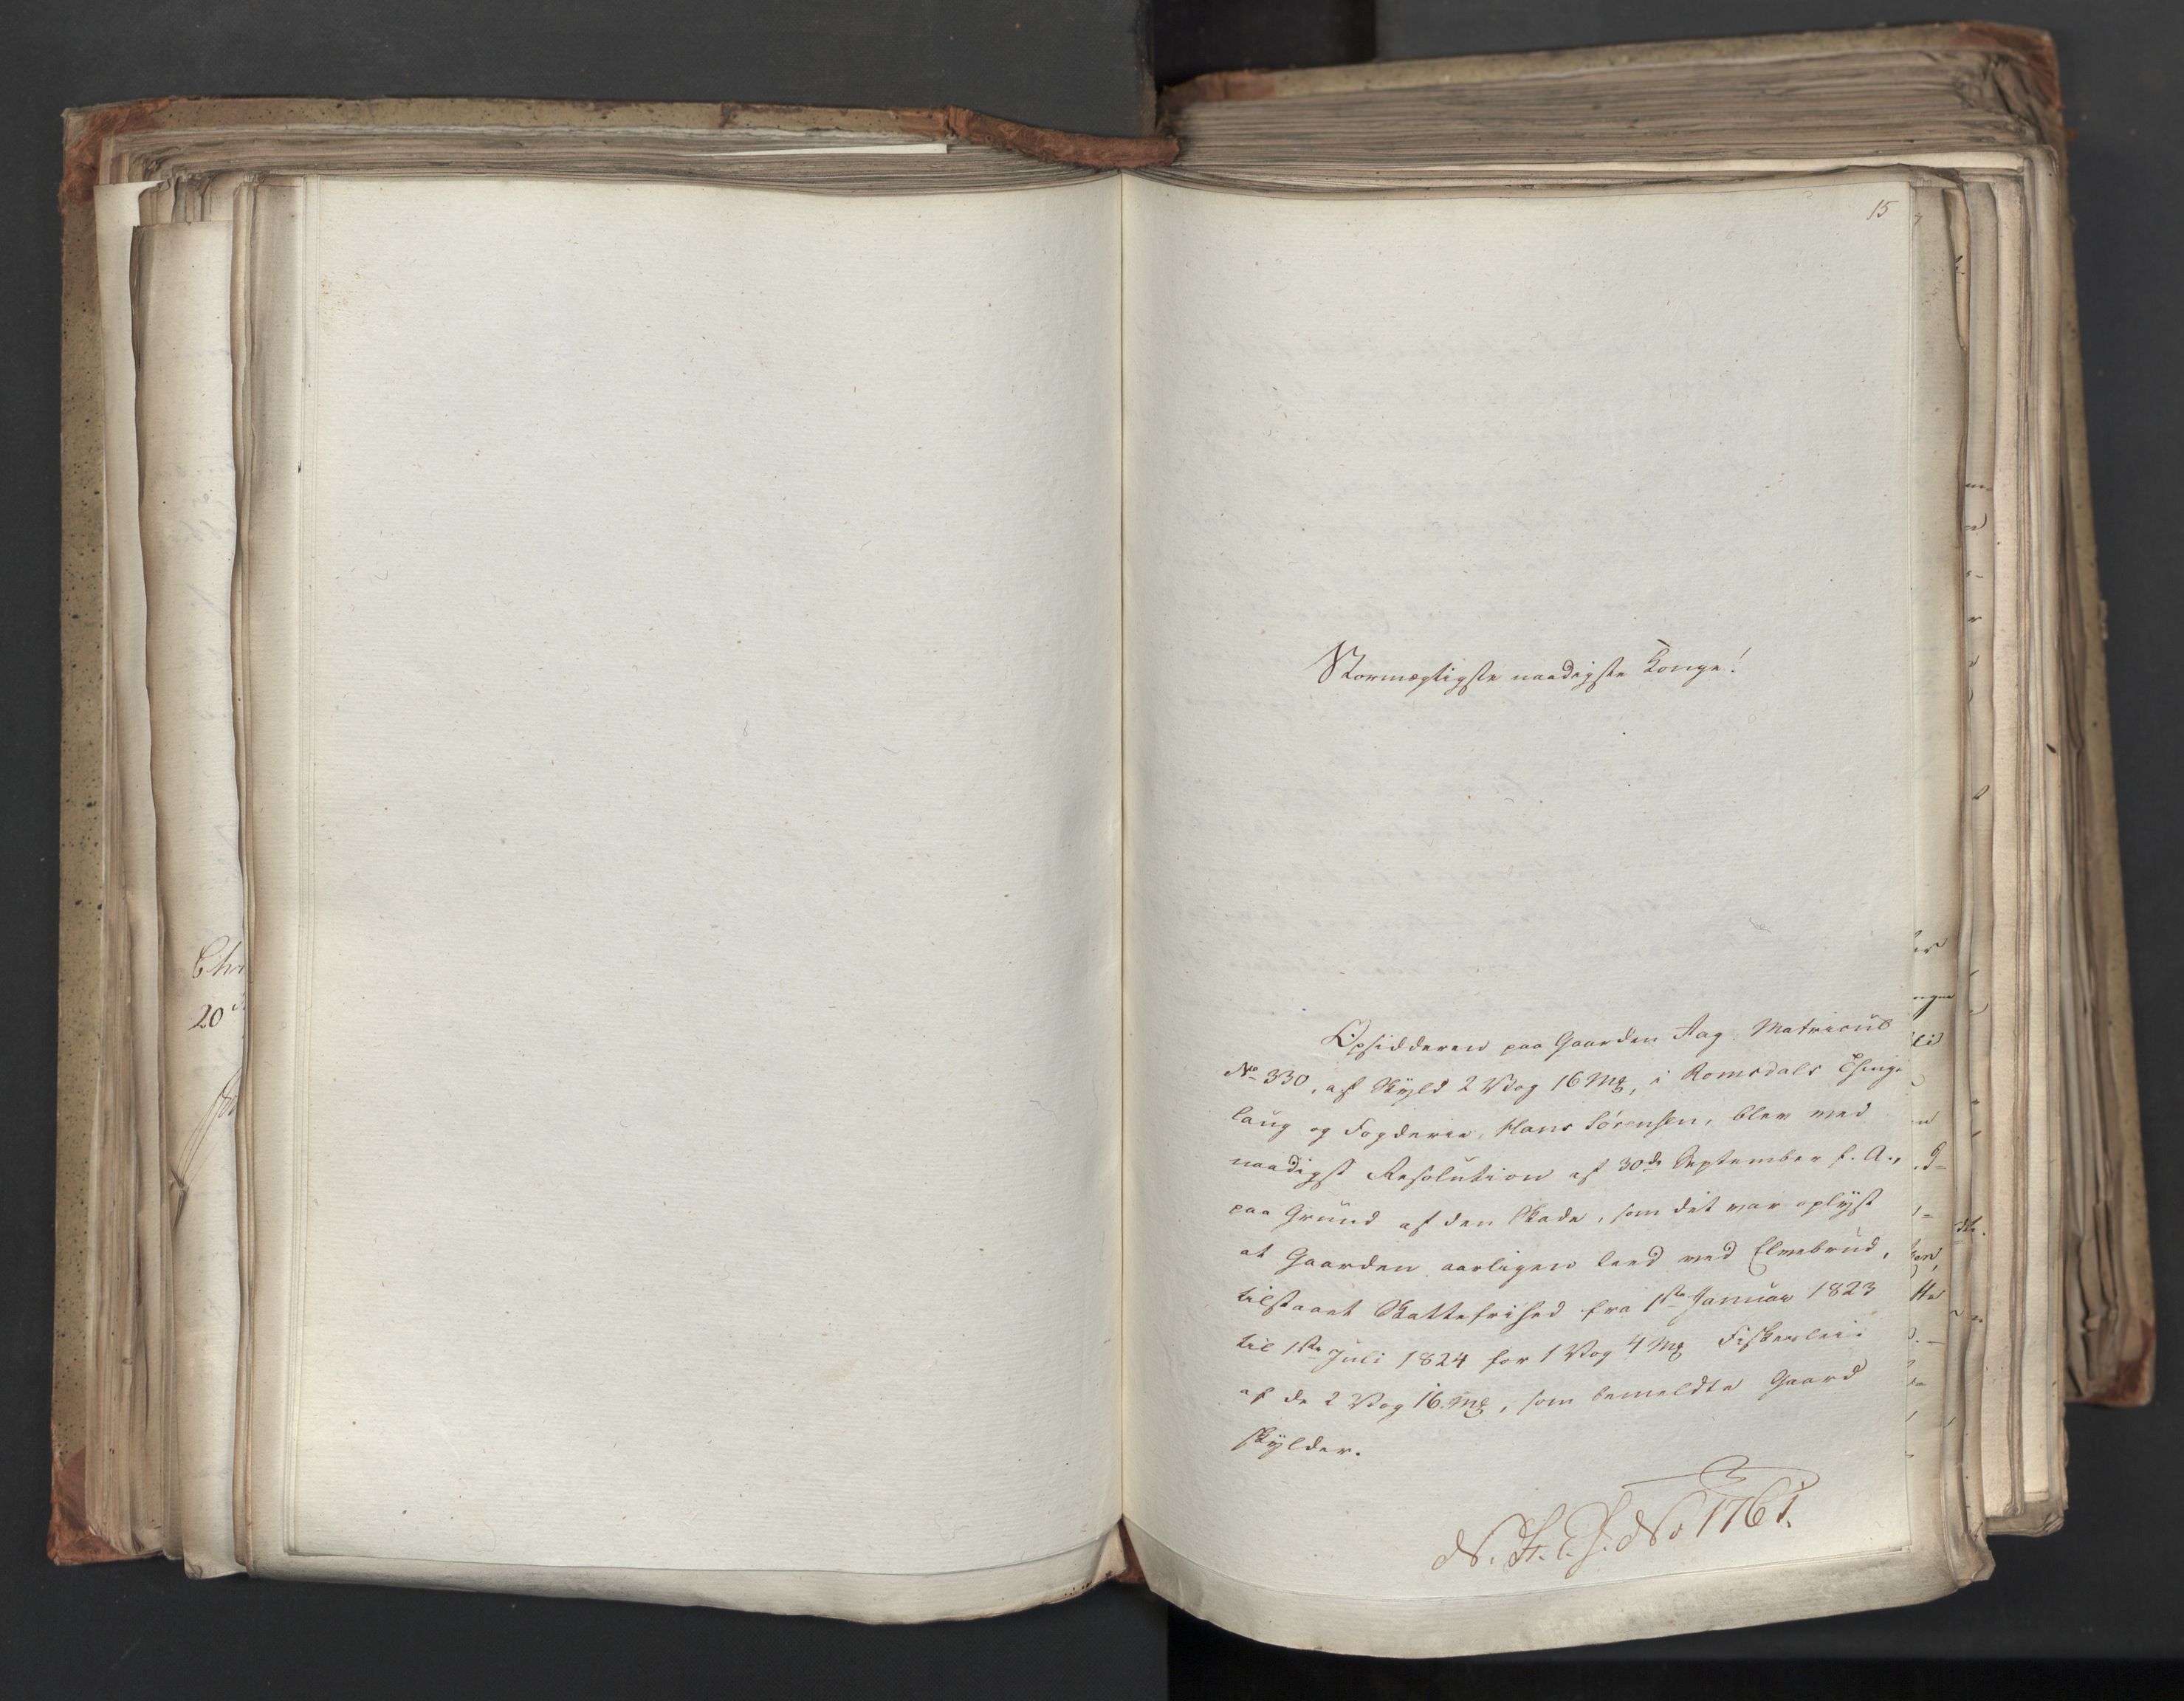 15
Stormægtigste naadigste Konge!
Opsidderen paa Gaarden Aag Matricul
No 330, af Skyld 2 Vog 16 Mk, i Romsdals Thing-
laug og Fogderie, Hans Sørensen, blev ved
naadigst Resolution af 30de September f. A.,
paa Grund af den Skade, som det var oplyst
at Gaarden aarligen leed ved Elvebrud,
tilstaaet Skattefrihed fra 1ste Januar 1823
til 1ste Juli 1824 for 1 Vog 4 Mk Fiskerleie
af de 2 Vog 16 Mk, som bemeldte Gaard
skylder.
No 1761.
Chr
20